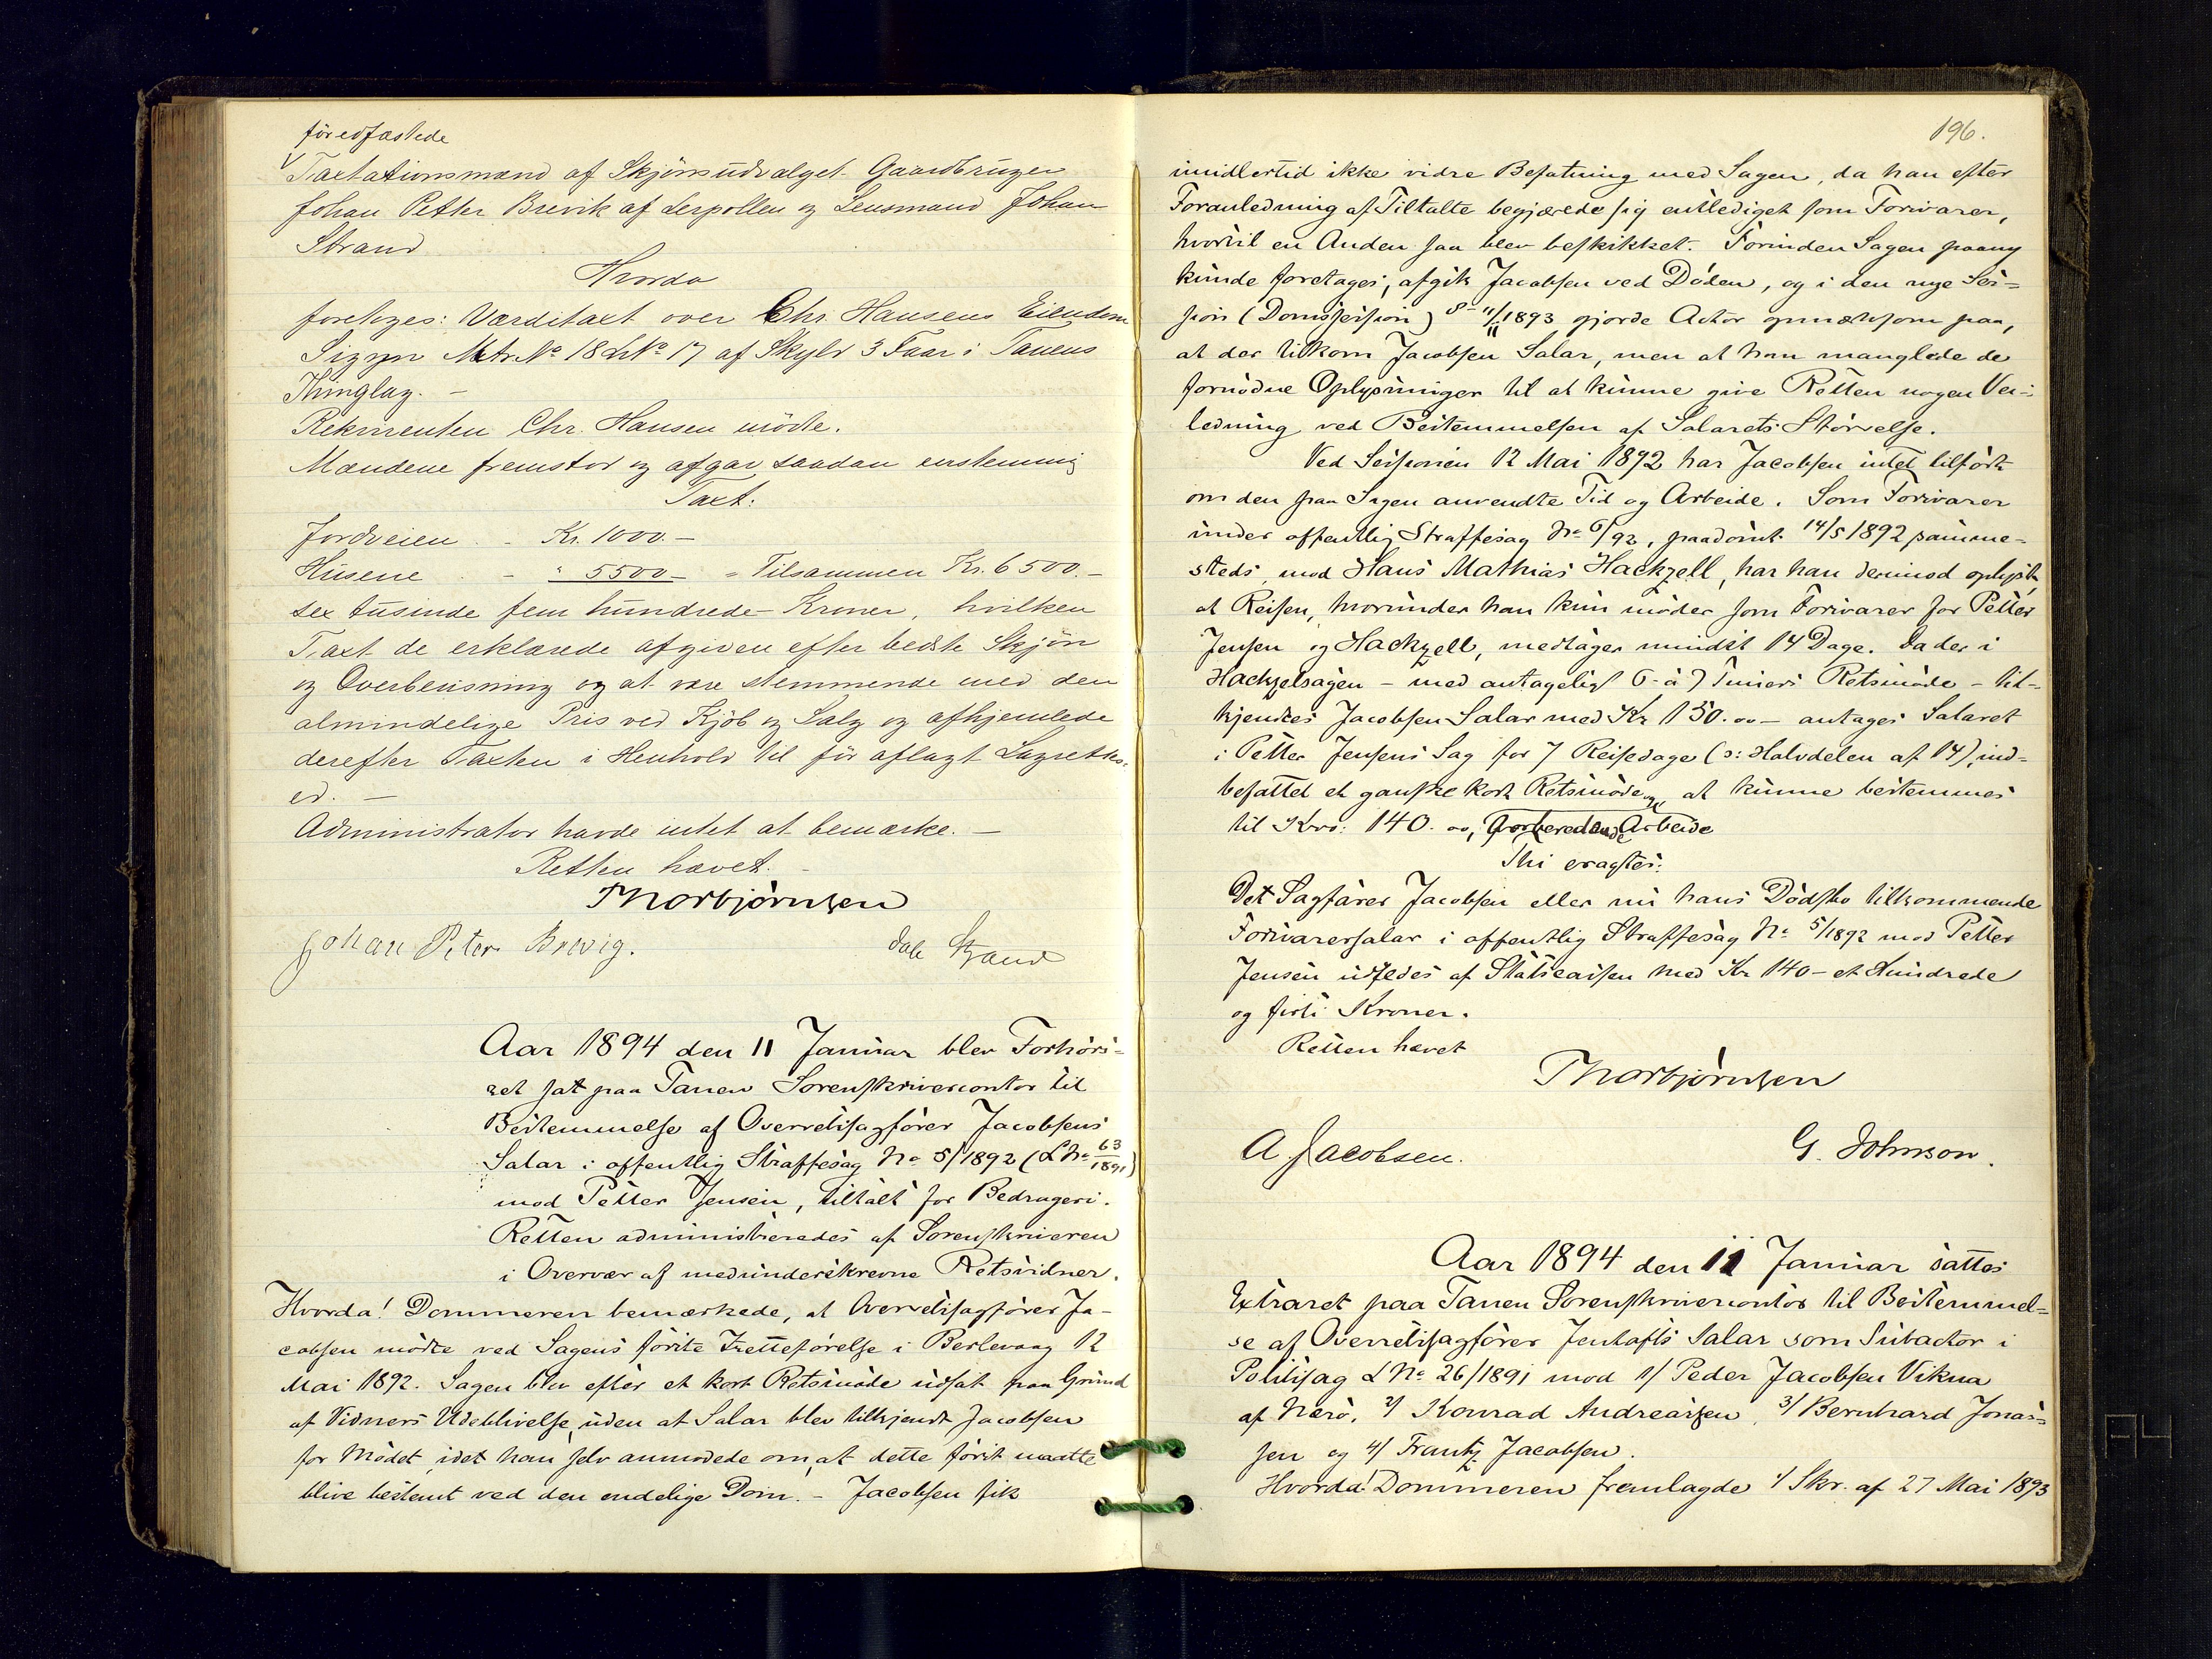 för edfæstede
√ Taxtationsmænd af Skjönsudvalget Gaardbruger
Johan Petter Brevik af Lerpollen og Lensmand Johan
Strand
Hvorda
foretoges: Værditaxt over Chr. Hansens Eiendom
Matr No 18 LNo 17 af Skyld 3 Faar i Tanens
Thinglag. –
Rekvirenten Chr. Hansen mödte.
Mændene fremstod og afgav saadan enstemmig
Taxt:
Jordveien - Kr. 1000.–
Husene - " 5500 - = Tilsammen Kr. 6500.–
sex tusinde fem hundrede Kroner, hvilken
Taxt de erklærede afgiven efter bedste Skjön
og Overbevisning og at være stemmende med den
almindelige Pris ved Kjöb og Salg og afhjemlede
derefter Taxten i Henhold til för aflagt Lagrettes-
ed. –
Administrator havde intet at bemærke. –
Retten hævet. –
Thorbjörnsen
Johan Peter Brevig. Strand
Aar 1894 den 11 Januar blev Forhörs-
ret sat paa Tanen Sorenskrivercontor til
Bestemmelse af Overretssagförer Jacobsens
Salær i offentlig Straffesag No 5/1892 (LNo 63/1891)
mod Petter Jensen, tiltalt for Bedrageri.
Retten administreredes af Sorenskriveren
i Overvær af medunderskrevne Retsvidner.
Hvorda! Dommeren bemærkede, at Overretssagförer Ja-
cobsen mödte ved Sagens förste Tretteförelse i Berlevaag 12
Mai 1892. Sagen blev efter et kort Retsmöde udsat paa Grund
af Vidners Udeblivelse, uden at Salær blev tilkjendt Jacobsen
for Mödet, idet han selv anmodede om, at dette förit maatte
blive bestemt ved den endelige Dom. – Jacobsen fik
196.
imidlertid ikke vidre Befatning med Sagen, da han efter
Foranledning af Tiltalte begjærede sig entlediget som Forsvarer,
hvortil en Anden saa blev beskikket. Forinden Sagen paany
kunde foretages, afgik Jacobsen ved Döden, og i den nye Ses-
sion (Domssession) 8-11/11 1893 gjorde Actor opmærksom paa,
at der tilkom Jacobsen Salær, men at han manglede de
fornödne Oplysninger til at kunne give Retten nogen Vei-
ledning ved Bestemmelsen af Salærets Störrelse.
Ved Sessionen 12 Mai 1892 har Jacobsen intet tilfört
om den paa Sagen anvendte Tid og Arbeide. Som Forsvarer
under offentlig Straffesag No 6/92, paadömt 14/5 1892 samme-
steds, mod Hans Mathias Hackzell, har han derimod oplyst,
at Reisen, hvorunder han kun möder som Forsvarer for Petter
Jensen og Hackzell, medtager mindst 14 Dage. Da der i
Hackzelsagen – med antagelig 6 à 7 Timers Retsmöde – til-
kjendtes Jacobsen Salær med Kr 150.00 – antages Salæret
i Petter Jensens Sag for 7 Reisedage (ɔ: Halvdelen af 14), ind-
befattet et ganske kort Retsmöde og at kunne bestemmes
til Kro: 140.00, forberedende Arbeide
Thi eragtes:
Det Sagförer Jacobsen eller nu hans Dödsbo tilkommende
Forsvarersalær i offentlig Straffesag No 5/1892 mod Petter
Jensen udredes af Statscassen med Kr 140 – et Hundrede
og firti Kroner.
Retten hævet
Thorbjörnsen
A. Jacobsen. G. Johnson.
Aar 1894 den 11 Januar sattes
Extraret paa Tanen Sorenskrivercontor til Bestemmel-
se af Overretssagförer Jenhofts Salær som Subactor i
Politisag LNo 26/1891 mod 1/ Peder Jacobsen Vikna
af Nærö, 2/ Konrad Andreassen, 3/ Bernhard Jonas-
sen og 4/ Frantz Jacobsen.
Hvorda! Dommeren fremlagde 1/ Skr. af 27 Mai 1893